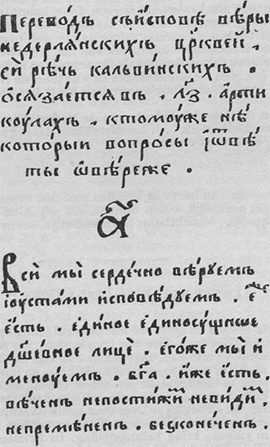 Переводъ сѣ исповѣ вѣры
недерлянскихъ црквей .
сй рѣчь кальвинскихъ .
ѡсязается въ . лз̃ . арти
коулах . к томоуже нѣ
которыи вопросы і ѿвѣ
ты ѡ вѣре же .
а҃
Вси мы сердечно вѣруемъ
і оустами исповѣдуемъ .
есть . едіное единосꙋщное
дш҃евное лице . егоже мы и
менꙋемъ . бг҃а . иже есть .
вѣченъ непостижи невиди
непремененъ . безконеченъ .